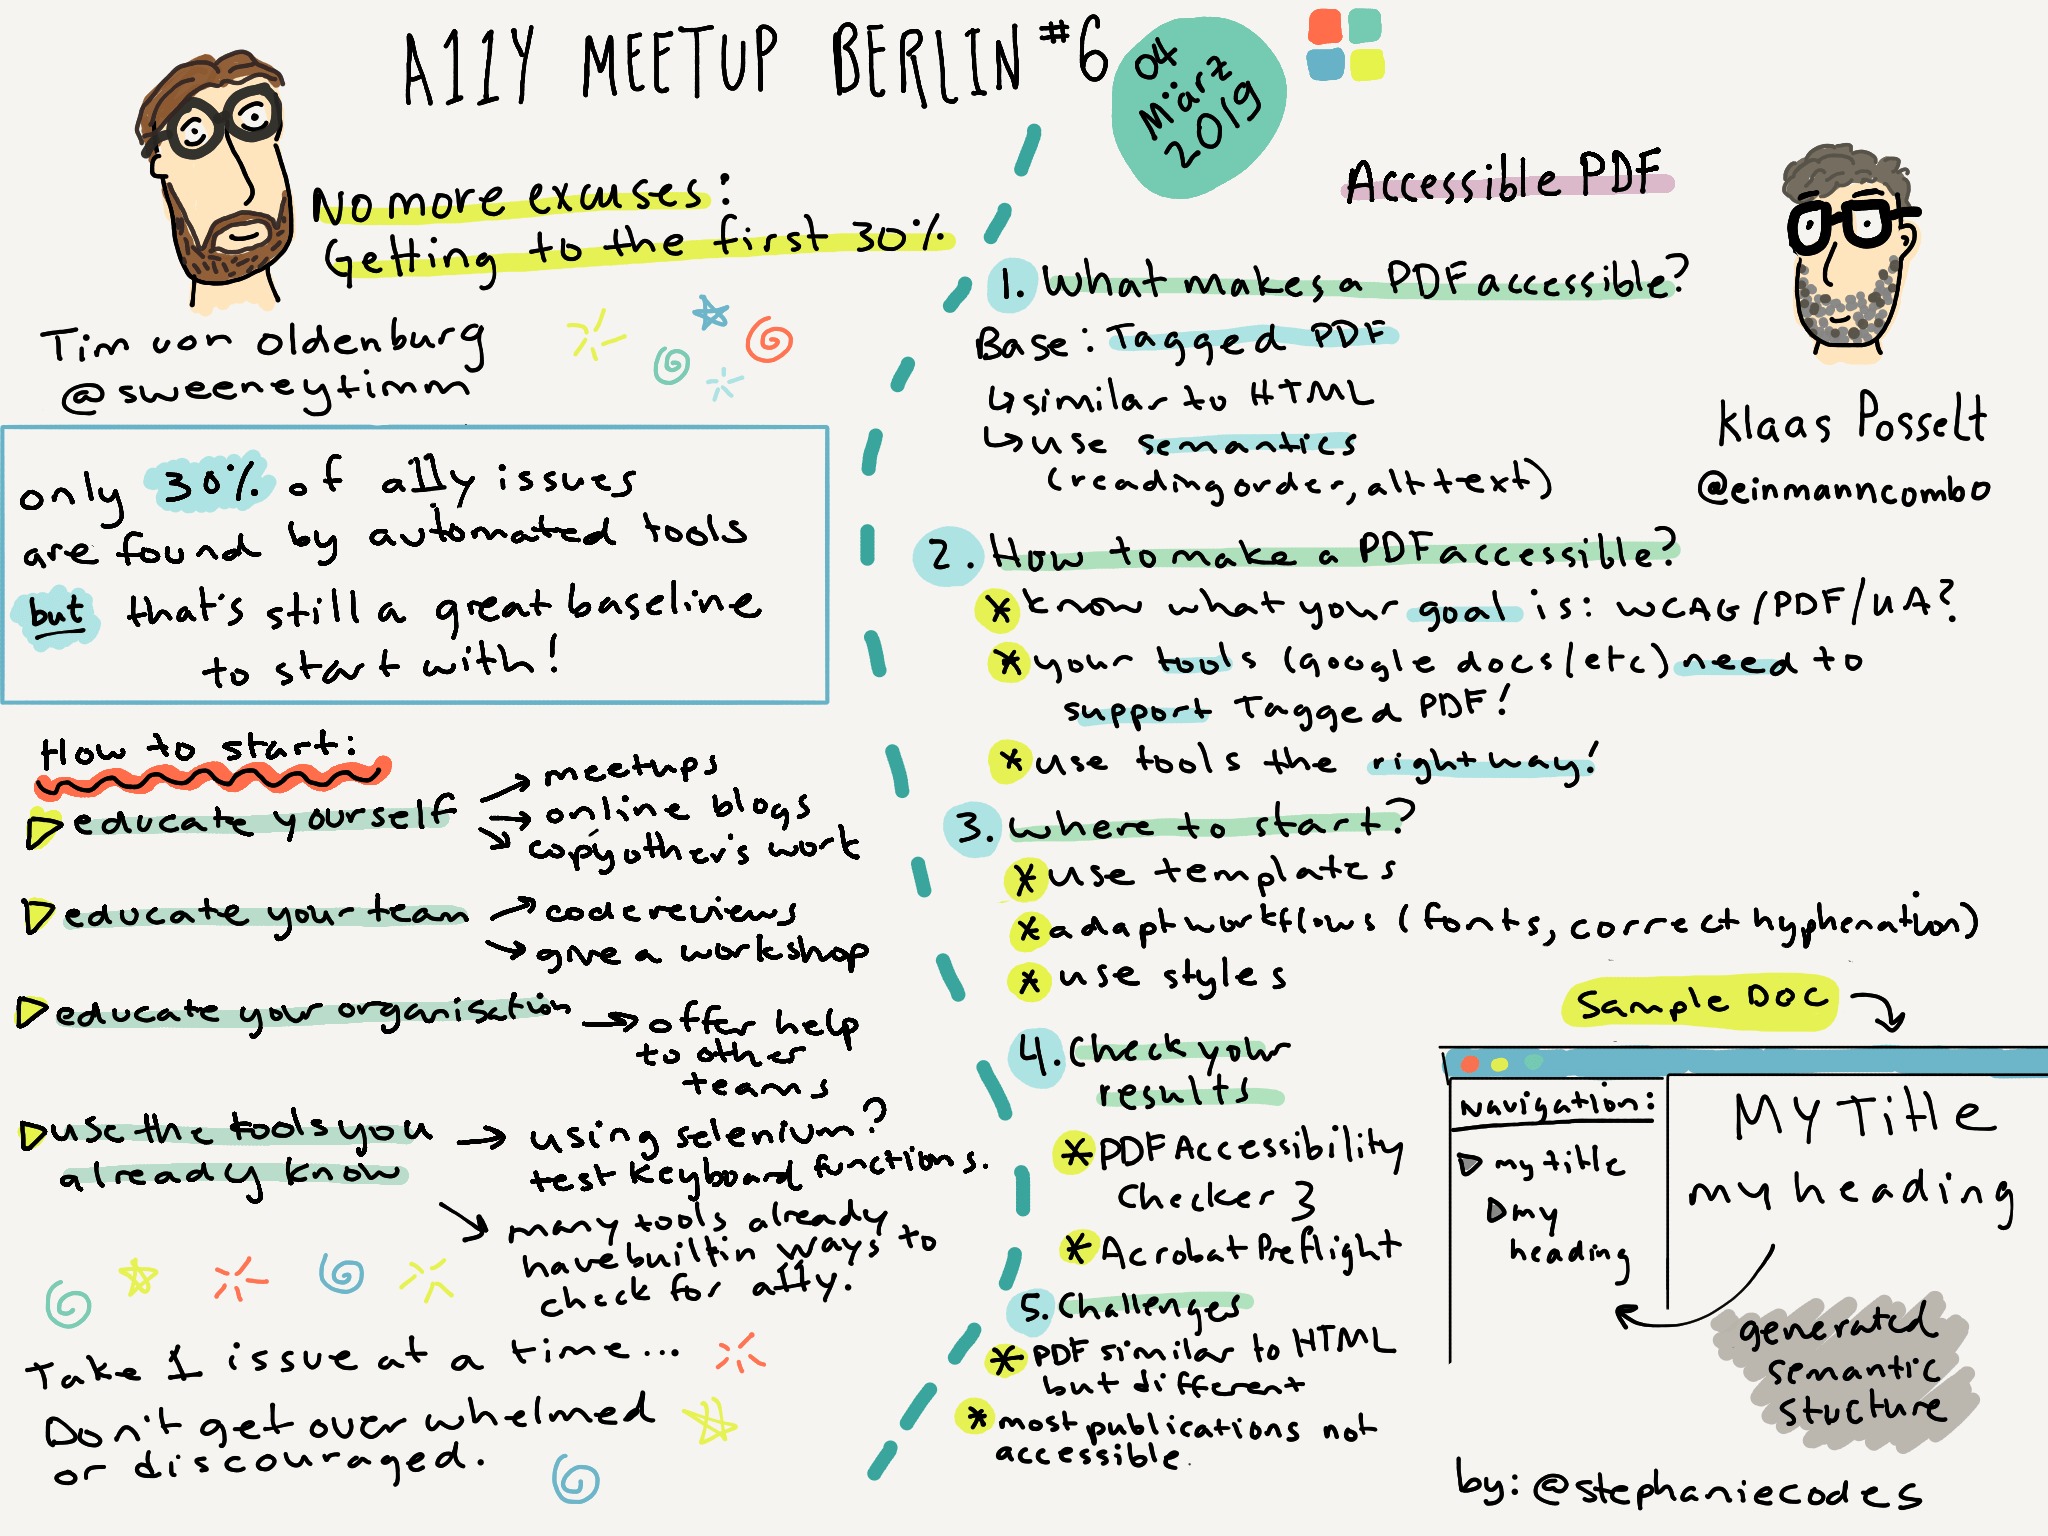 A11Y MEETUP BERLIN #6
04
März
2019
No more excuses:
Getting to the first 30%
Tim von Oldenburg
@sweeneytimm
only 30% of a11y issues
are found by automated tools
but that's still a great baseline
to start with!
How to start:
educate yourself
meetups
online blogs
copy other's work
educate your team
code reviews
give a workshop
educate your organisation
offer help
to other
teams
use the tools you
already know
using selenium?
test keyboard functions.
many tools already
have builtin ways to
check for a11y.
Take 1 issue at a time...
Don't get overwhelmed
or discouraged.
Accessible PDF
Klaas Posselt
@einmanncombo
1. What makes a PDF accessible?
Base: Tagged PDF
similar to HTML
use semantics
(reading order, alt text)
2. How to make a PDF accessible?
* know what your goal is: WCAG/PDF/UA?
* your tools (google docs/etc) need to
support Tagged PDF!
* use tools the right way!
3. where to start?
* use templates
* adapt workflows (fonts, correct hyphenation)
* use styles
4. Check your
results
* PDF Accessibility
Checker 3
* Acrobat Preflight
5. Challenges
* PDF similar to HTML
but different
* most publications not
accessible.
Sample DOC
Navigation:
my title
my
heading
My Title
my heading
generated
semantic
stucture
by: @stephaniecodes